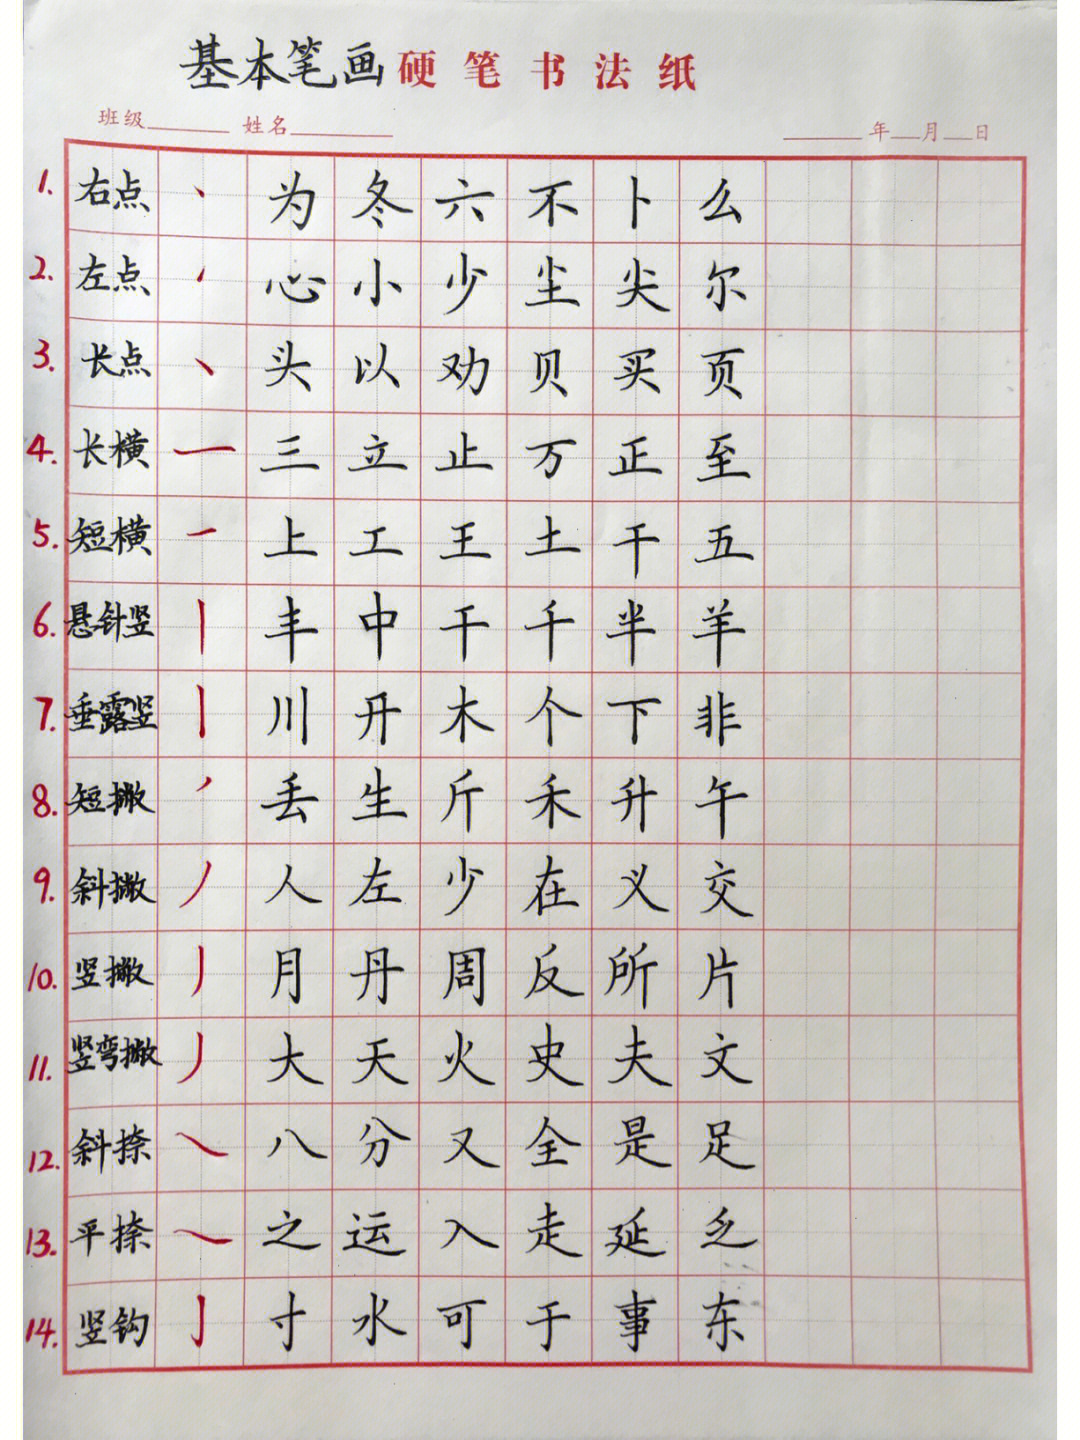 基本笔画硬笔书法纸
班级 姓名 年 月 日
1. 右点 丶 为 冬 六 不 卜 么
2. 左点 心 小 少 尘 尖 尔
3. 长点 丶 头 以 劝 贝 买 页
4. 长横 一 三 立 止 万 正 至
5. 短横 一 上 工 王 土 干 五
6. 悬针竖 丨 丰 中 干 千 半 羊
7. 垂露竖 丨 川 开 木 个 下 非
8. 短撇 丿 丢 生 斤 禾 升 午
9. 斜撇 丿 人 左 少 在 义 交
10. 竖撇 丿 月 丹 周 反 所 片
11. 竖弯撇 丿 大 天 火 史 夫 文
12. 斜捺 ㇏ 八 分 又 全 是 足
13. 平捺 ㇏ 之 运 入 走 延 乏
14. 竖钩 亅 寸 水 可 于 事 东